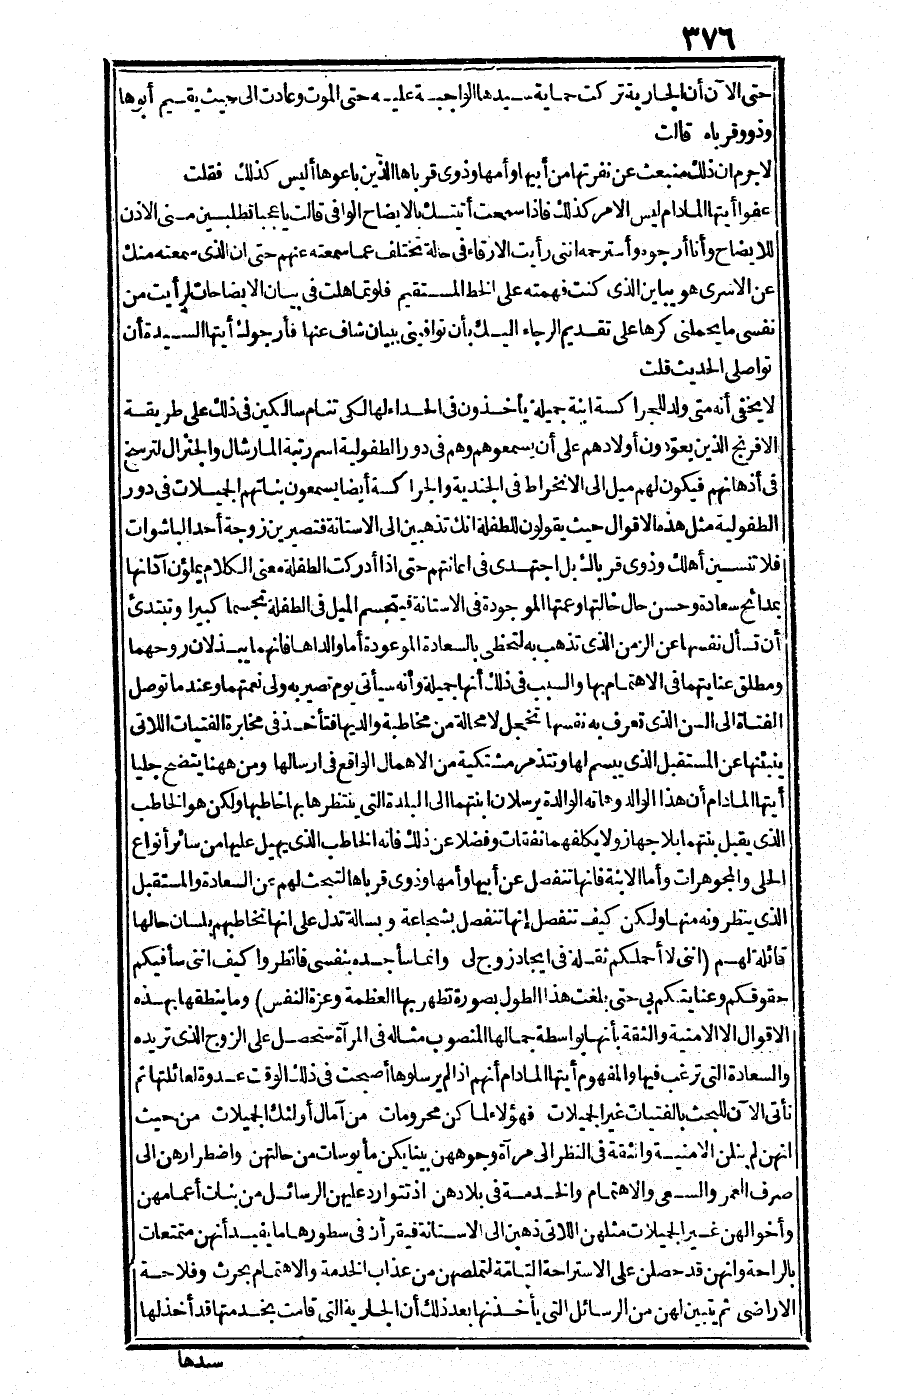 ٣٧٦
حتى الآن أن الجارية تركت حماية سيدها الواجبة عليه حتى الموت وعادت الى حيث يقيم أبوها
وذوو قرباه قالت
لاجرم ان ذلك منبعث عن نفرتها من أبيها وأمها وذوى قرباها الذين باعوها أليس كذلك فقلت
عفوا أيتها المادام ليس الامر كذلك فاذا سمعت أتيتك بالايضاح الوافى قالت ياعجبا فطلبين منى الاذن
للايضاح وأنا أرجوه وأسترحمه اننى رأيت الارقاء فى حالة تختلف عما سمعته عنهم حتى ان الذى سمعته منك
عن الاسرى هو يباين الذى كنت فهمته على الخط المستقيم فلو تماهلت فى بيان الايضاحات لرأيت من
نفسى ما يحملنى كرها على تقديم الرجاء اليك بأن توافينى ببيان شاف عنها فأرجوك أيتها السيدة أن
تواصلى الحديث قلت
لا يخفى أنه متى ولد للجراكسة ابنة جميلة يأخذون فى الحداء لها لكى تنام سالكين فى ذلك على طريقة
الافرنج الذين يعوّدون أولادهم على أن يسمعوهم وهم فى دور الطفولية اسم رتبة المارشال والجنرال لترسخ
فى أذهانهم فيكون لهم ميل الى الانخراط فى الجندية والجراكسة أيضا يسمعون بناتهم الجميلات فى دور
الطفولية مثل هذه الاقوال حيث يقولون للطفلة انك تذهبين الى الاستانة فتصيرين زوجة أحد الباشوات
فلا تنسين أهلك وذوى قرباك بل اجتهدى فى اعانتهم حتى اذا أدركت الطفلة معنى الكلام يملؤن آذانها
بمدائح سعادة وحسن حال خالتها وعمتها الموجودة فى الاستانة فيتجسم الميل فى الطفلة تجسما كبيرا وتبتدئ
أن تسأل نفسها عن الزمن الذى تذهب به لتحظى بالسعادة الموعودة أما والداها فانهما يبذلان روحهما
ومطلق عنايتهما فى الاهتمام بها والسبب فى ذلك أنها جميلة وأنه سيأتى يوم تصير به ولى نعمتهما وعندما توصل
الفتاة الى السن الذى تعرف به نفسها تخجل لا محالة من مخاطبة والديها فتأخذ فى مخابرة الفتيات اللاتى
ينبئنها عن المستقبل الذى يبسم لها وتتذمر مشتكية من الاهمال الواقع فى ارسالها ومن ههنا يتضح جليا
أيتها المادام أن هذا الوالد وهاته الوالدة يرسلان ابنتهما الى البلدة التى ينتظرها بها خاطبها ولكن هو الخاطب
الذى يقبل بنتهما بلا جهاز ولا يكلفهما نفقات وفضلا عن ذلك فانه الخاطب الذى يهيل عليها من سائر أنواع
الحلى والمجوهرات وأما الابنة فانها تنفصل عن أبيها وأمها وذوى قرباها لتبحث لهم عن السعادة والمستقبل
الذى ينتظرونه منها ولكن كيف تنفصل إنها تنفصل بشجاعة وبسالة تدل على انها تخاطبهم بلسان حالها
قائلة لهم (اننى لا أحملكم ثقلة فى ايجاد زوج لى وانما سأجده بنفسى فانظروا كيف اننى سأفيكم
حقوقكم وعنايتكم بى حتى بلغت هذا الطول بصورة تظهر بها العظمة وعزة النفس) وما ينطقها بهذه
الاقوال الا الامنية والثقة بأنها بواسطة جمالها المنصوب مثاله فى المرآة ستحصل على الزوج الذى تريده
والسعادة التى ترغب فيها والمفهوم أيتها المادام أنهم اذا لم يرسلوها أصبحت فى ذلك الوقت عدوة لعائلتها ثم
نأتى الآن للبحث بالفتيات غير الجميلات فهؤلاء لما كن محرومات من آمال أولئك الجميلات من حيث
انهن لم ينلن الامنية واثقة فى النظر الى مرآة وجوههن بينا يكن مأيوسات من حالتهن واضطرارهن الى
صرف العمر والسعى والاهتمام والخدمة فى بلادهن اذ تتوارد عليهن الرسائل من بنات أعمامهن
وأخوالهن غير الجميلات مثلهن اللاتى ذهبن الى الاستانة فيقرأن فى سطورها ما يفيد أنهن متمتعات
بالراحة وانهن قد حصلن على الاستراحة التامة لتملصهن من عذاب الخدمة والاهتمام بحرث وفلاحة
الاراضى ثم يتبين لهن من الرسائل التى يأخذنها بعد ذلك أن الجارية التى قامت بخدمتها قد أخذ لها
سيدها